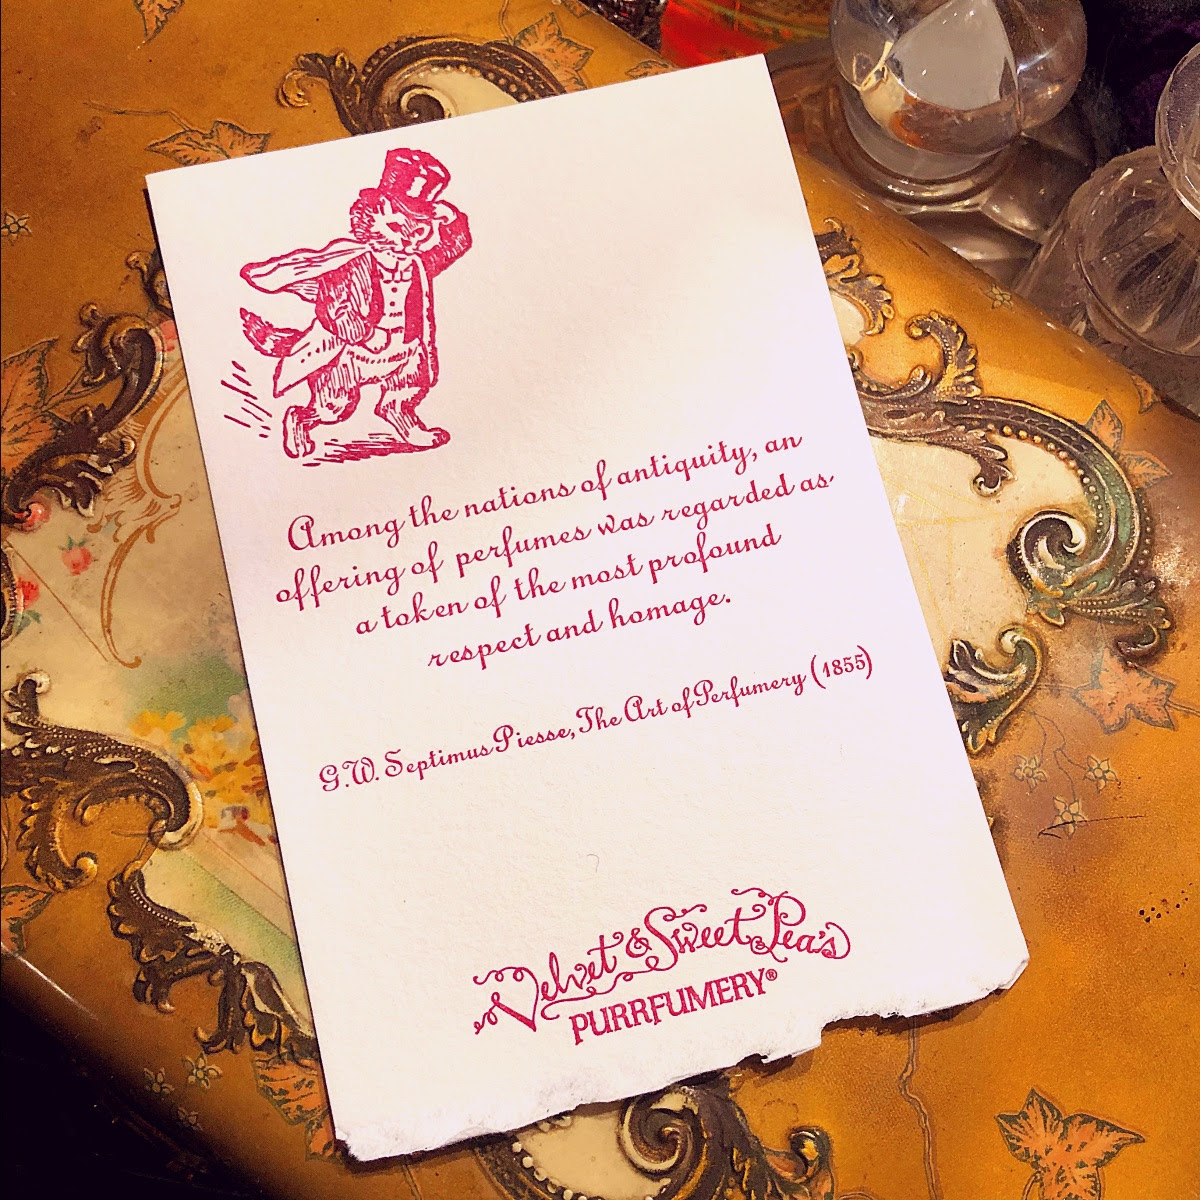 Among the nations of antiquity, an
offering of perfumes was regarded as
a token of the most profound
respect and homage.
G.W. Septimus Piesse, The Art of Perfumery (1855)
Velvet & Sweet Pea's
PURRFUMERY®